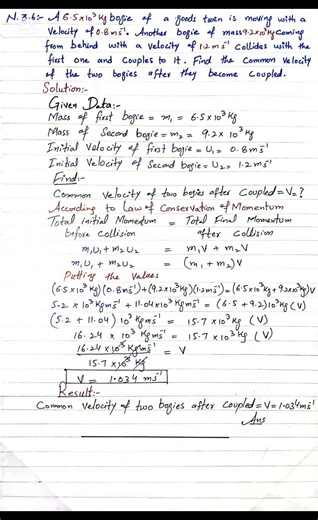 N.3.6:- A 6.5x10³ Kg bogie of a goods tren is moving with a
velocity of 0.8 ms⁻¹. Another bogie of mass 9.2x10³kg coming
from behind with a velocity of 1.2 ms⁻¹ collides with the
first one and couples to it. Find the common velocity
of the two bogies after they become coupled.
Solution:-
Given Data:-
Mass of first bogie = m₁ = 6.5x10³ kg
Mass of Second bogie = m₂ = 9.2 x 10³ kg
Initial Velocity of first bogie = U₁ = 0.8 ms⁻¹
Initial Velocity of Second bogie = U₂ = 1.2 ms⁻¹
Find:-
Common velocity of two bogies after Coupled = V = ?
According to Law of Conservation of Momentum
Total initial Momentum = Total Final Momentum
before collision after collision
m₁U₁ + m₂U₂ = m₁V + m₂V
m₁U₁ + m₂U₂ = (m₁ + m₂)V
Putting the Values
(6.5x10³kg)(0.8ms⁻¹)+(9.2x10³kg)(1.2ms⁻¹)=(6.5x10³kg+9.2x10³kg)V
5.2 x 10³ kgms⁻¹ + 11.04x10³ kgms⁻¹ = (6.5 + 9.2)10³kg (V)
(5.2 + 11.04) 10³ kgms⁻¹ = 15.7 x10³ kg (V)
16.24 x 10³ kgms⁻¹ = 15.7x10³ kg (V)
16.24 x10³ kgms⁻¹ = V
15.7 x10³ kg
V = 1.034 ms⁻¹
Result:-
Common Velocity of two bogies after coupled = V = 1.034 ms⁻¹
Ans